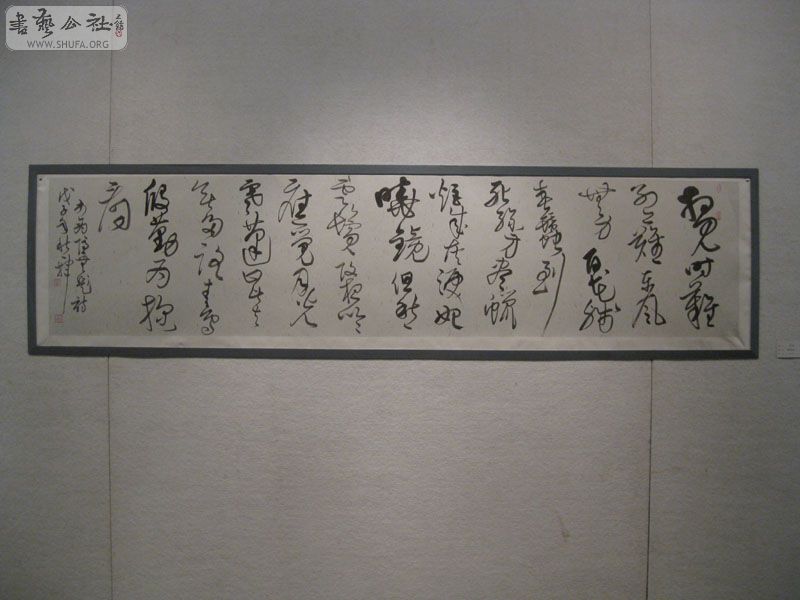 相見時難
別亦難東風
無力百花殘
春蠶到
死絲方盡蠟
炬成灰淚始
曉鏡但愁
雲鬢改夜吟
應覺月光
寒蓬山此去
無多路青鳥
殷勤為探
看
商隱無題詩
戊子年秋
書藝公社
WWW.SHUFA.ORG